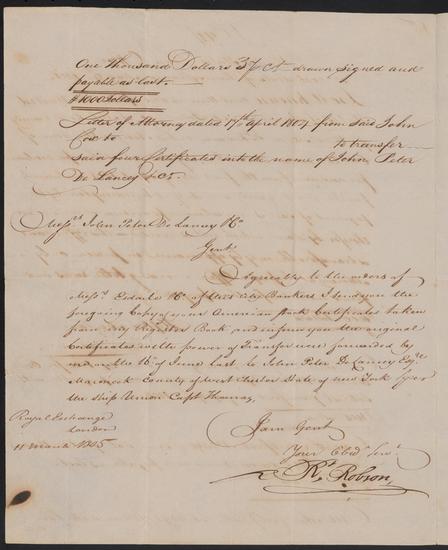 One Thousand Dollars 3 p Ct drawn signed and
payable as last.
$1000 Dollars
Letter of Attorney dated 17th April 1804 from said John
Cox to to transfer
said four Certificates into the name of John Peter
De Lancey & Co.
Messrs John Peter De Lancey & Co
Gent
Agreeably to the orders of
Messrs Esdaile & Co of this city Bankers I send you the
foregoing Copy of your American Stock Certificates taken
from my Register Book, and inform you the original
Certificates with the power of Transfer were forwarded by
me on the 16th of June last to John Peter De Lancey Esqr
Marineck County of West Chester State of New York per
the Ship Union Capt Thomas,
Royal Exchange
London
11 March 1805
I am Gent
Your Obedt Servt
Rt Robson,